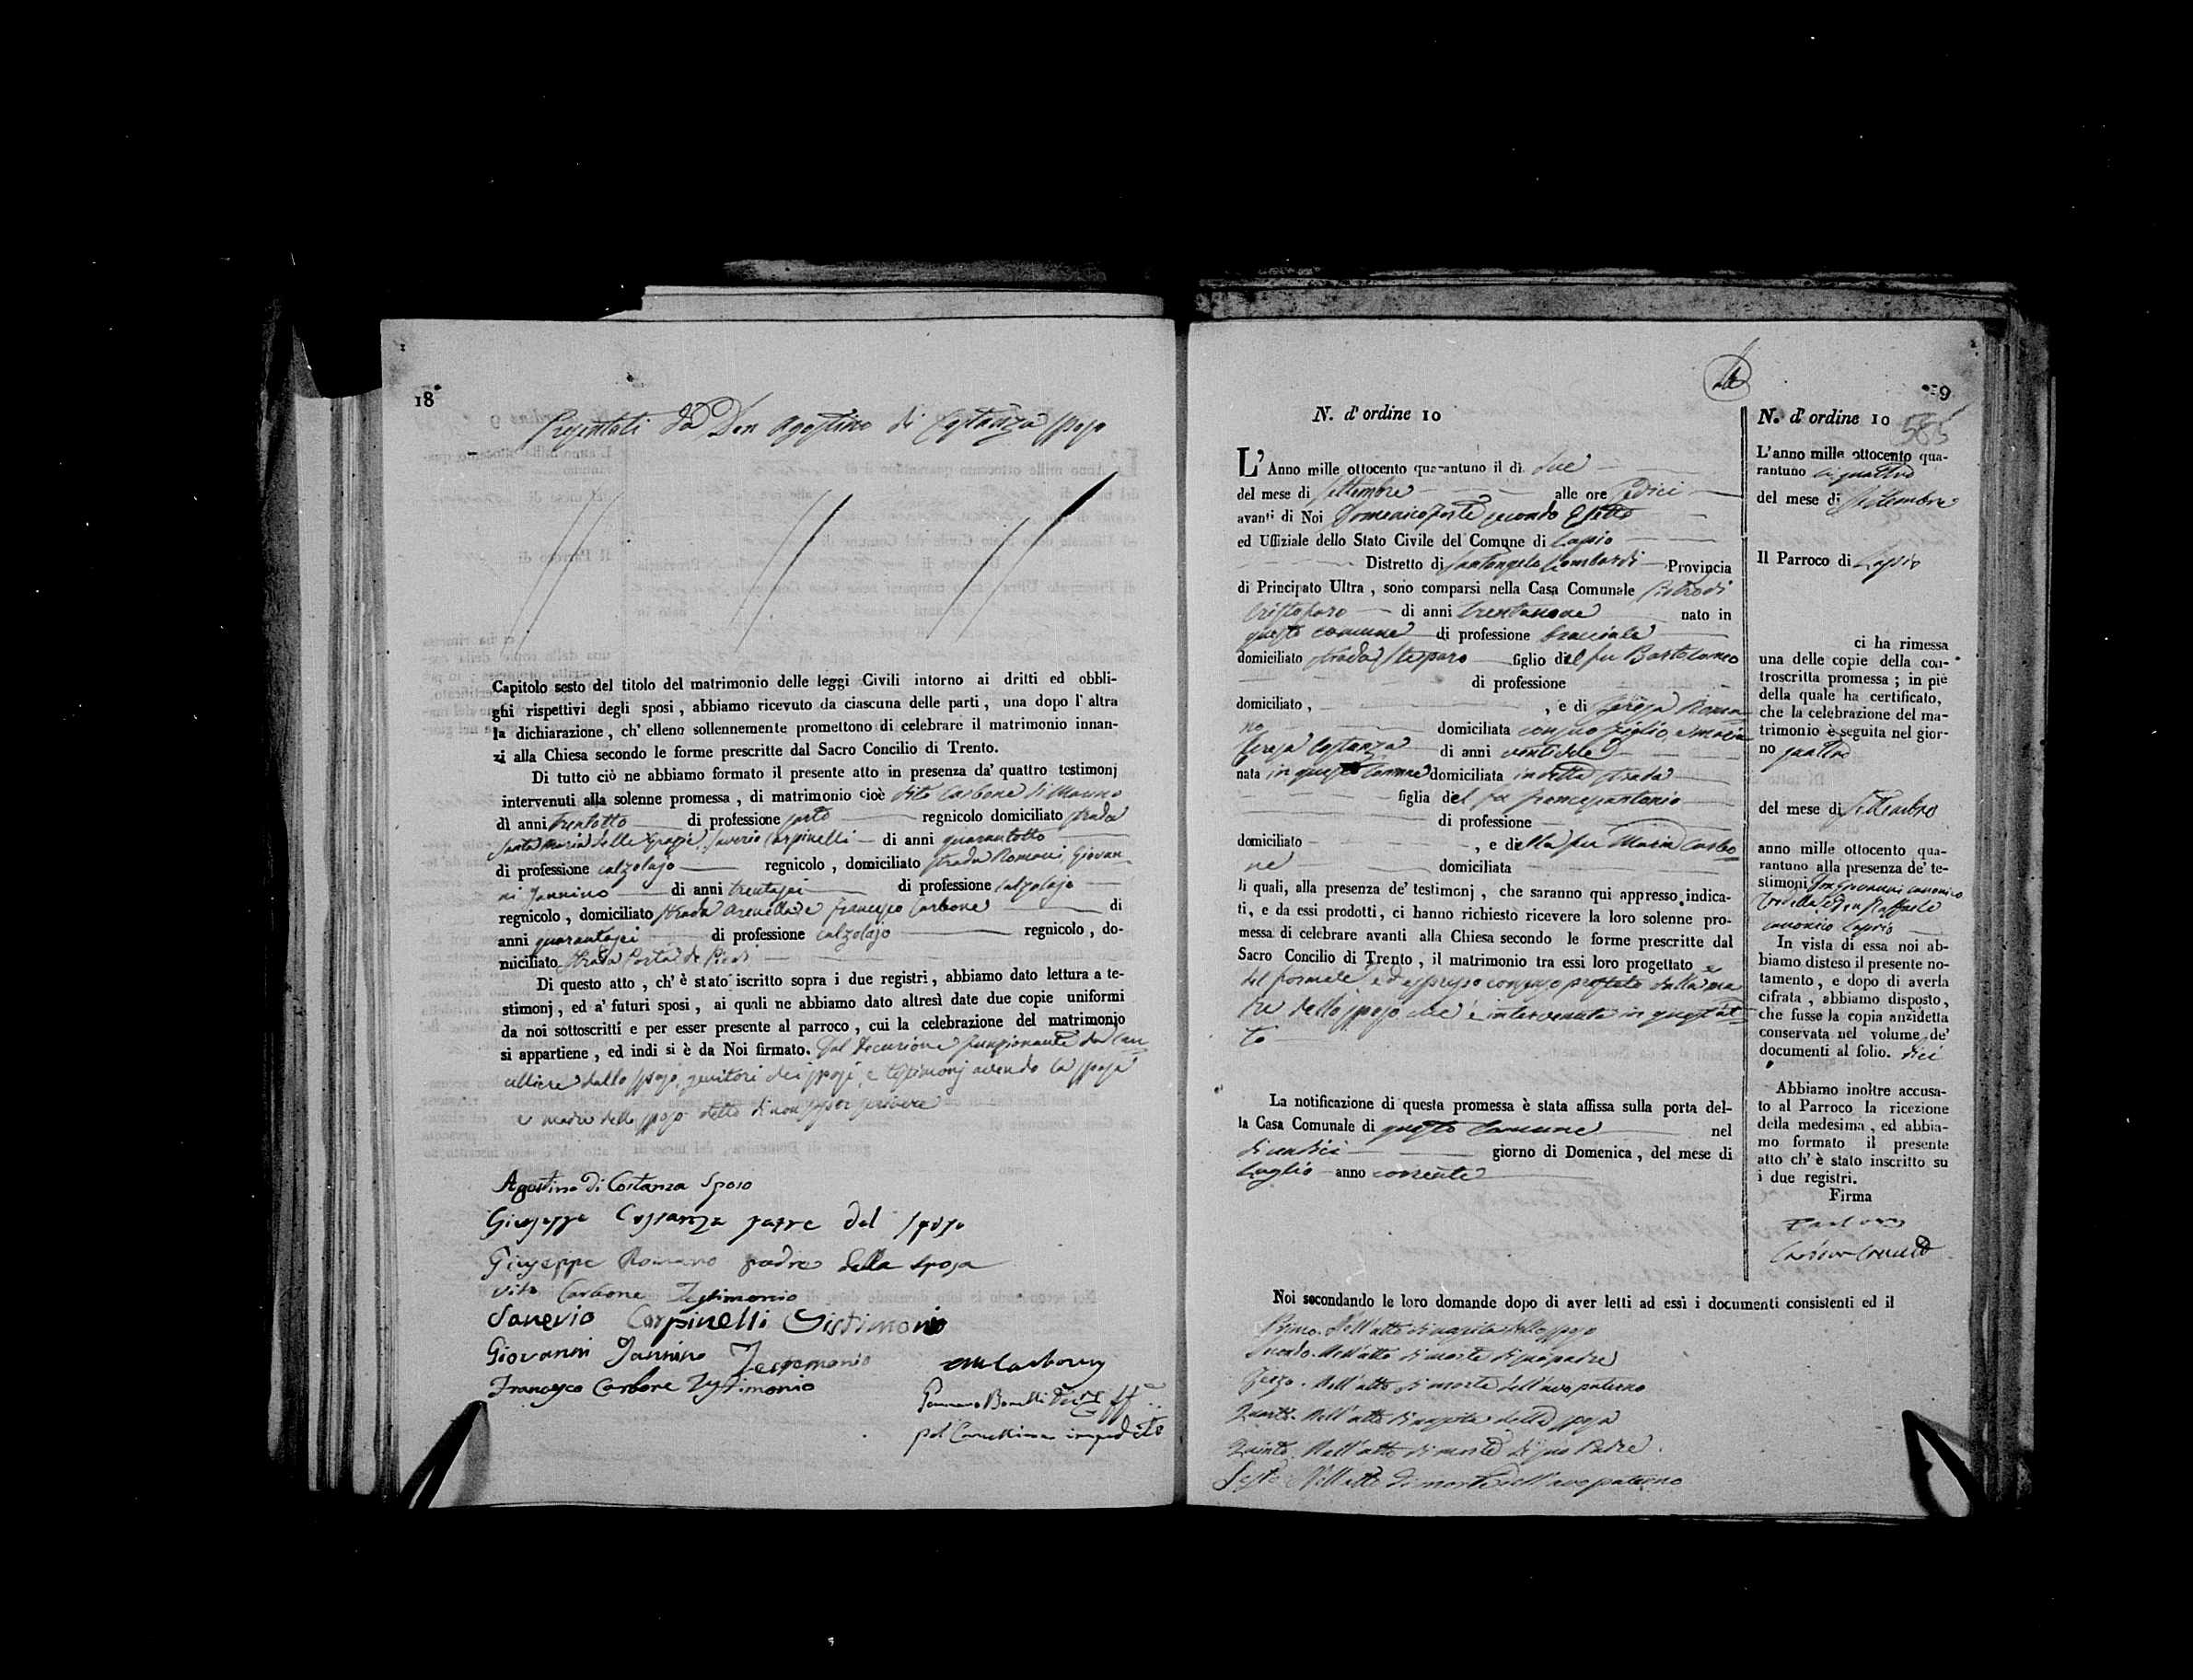 18
Presentati da Don Agostino di Costanza sposo
Capitolo sesto del titolo del matrimonio delle leggi Civili intorno ai dritti ed obbli-
ghi rispettivi degli sposi, abbiamo ricevuto da ciascuna delle parti, una dopo l'altra
la dichiarazione, ch'elleno sollennemente promettono di celebrare il matrimonio innan-
zi alla Chiesa secondo le forme prescritte dal Sacro Concilio di Trento.
Di tutto ciò ne abbiamo formato il presente atto in presenza da' quattro testimonj
intervenuti alla solenne promessa, di matrimonio cioè Vito Carbone di
di anni trentotto di professione sarto regnicolo domiciliato strada
Santa Maria delle Grazie, Saverio Carpinelli di anni quarantotto
di professione calzolajo regnicolo, domiciliato strada Romani, Giovan-
ni Jannino di anni trentasei di professione calzolajo
regnicolo, domiciliato strada e Francesco Carbone di
anni quarantasei di professione calzolajo regnicolo, do-
miciliato strada Porta
Di questo atto, ch'è stato iscritto sopra i due registri, abbiamo dato lettura a te-
stimonj, ed a' futuri sposi, ai quali ne abbiamo dato altresì date due copie uniformi
da noi sottoscritti e per esser presente al parroco, cui la celebrazione del matrimonio
si appartiene, ed indi si è da Noi firmato. Dal Decurione funzionante da Can
celliere dallo sposo, genitori dei sposi, e testimonj avendo la sposa
e madre dello sposo detto di non saper scrivere
Agostino di Costanza Sposo
Giuseppe Costanza patre del sposo
Giuseppe Romano padre della sposa
Vito Carbone Testimonio
Saverio Carpinelli Tistimonio
Giovanni Jannino Testemonio
Francesco Carbone Testimonio
Gennaro Bonelli
pel Cancelliere impedito
9
585
N. d'ordine 10
L'Anno mille ottocento quarantuno il dì due
del mese di Settembre alle ore sedici
avanti di Noi Domenico Forte secondo Eletto
ed Uffiziale dello Stato Civile del Comune di Lapio
Distretto di Santangelo Lombardi Provincia
di Principato Ultra, sono comparsi nella Casa Comunale Pietro di
Cristofaro di anni trentanove nato in
questo comune di professione bracciale
domiciliato strada figlio del fu Bartolomeo
di professione
domiciliato, , e di Teresa Roma
no domiciliata con suo figlio, e Maria
Teresa Costanza di anni ventidue
nata in questo Comune domiciliata in detta strada
figlia del fu Francesantonio
di professione
domiciliato , e della fu Maria Carbo
ne domiciliata
li quali, alla presenza de' testimonj, che saranno qui appresso indica-
ti, e da essi prodotti, ci hanno richiesto ricevere la loro solenne pro-
messa di celebrare avanti alla Chiesa secondo le forme prescritte dal
Sacro Concilio di Trento, il matrimonio tra essi loro progettato
del formale ed espresso consenso prestato dalla ma
dre dello sposo che è intervenuta in quest'at
to
La notificazione di questa promessa è stata affissa sulla porta del-
la Casa Comunale di questo Comune nel
dì undici giorno di Domenica, del mese di
Luglio anno corrente
N. d'ordine 10
L'anno mille ottocento qua-
rantuno quattro
del mese di Settembre
Il Parroco di Lapio
ci ha rimessa
una delle copie della con-
troscritta promessa; in piè
della quale ha certificato,
che la celebrazione del ma-
trimonio è seguita nel gior-
no quattro
del mese di Settembre
anno mille ottocento qua-
rantuno alla presenza de' te-
stimonj Don Giovanni canonico
e Don Raffaele
canonico Caprio
In vista di essa noi ab-
biamo disteso il presente no-
tamento, e dopo di averla
cifrata, abbiamo disposto,
che fusse la copia anzidetta
conservata nel volume de'
documenti al folio. dieci
Abbiamo inoltre accusa-
to al Parroco la ricezione
della medesima, ed abbia-
mo formato il presente
atto ch'è stato inscritto su
i due registri.
Firma
Noi secondando le loro domande dopo di aver letti ad essi i documenti consistenti ed il
Primo. Nell'atto di nascita dello sposo
Secondo. Nell'atto di morte di suo padre
Terzo. Nell'atto di morte dell'avo paterno
Quarto. Nell'atto di nascita della sposa
Quinto. Nell'atto di morte di suo Padre.
Sesto Nell'atto di morte dell'avo paterno